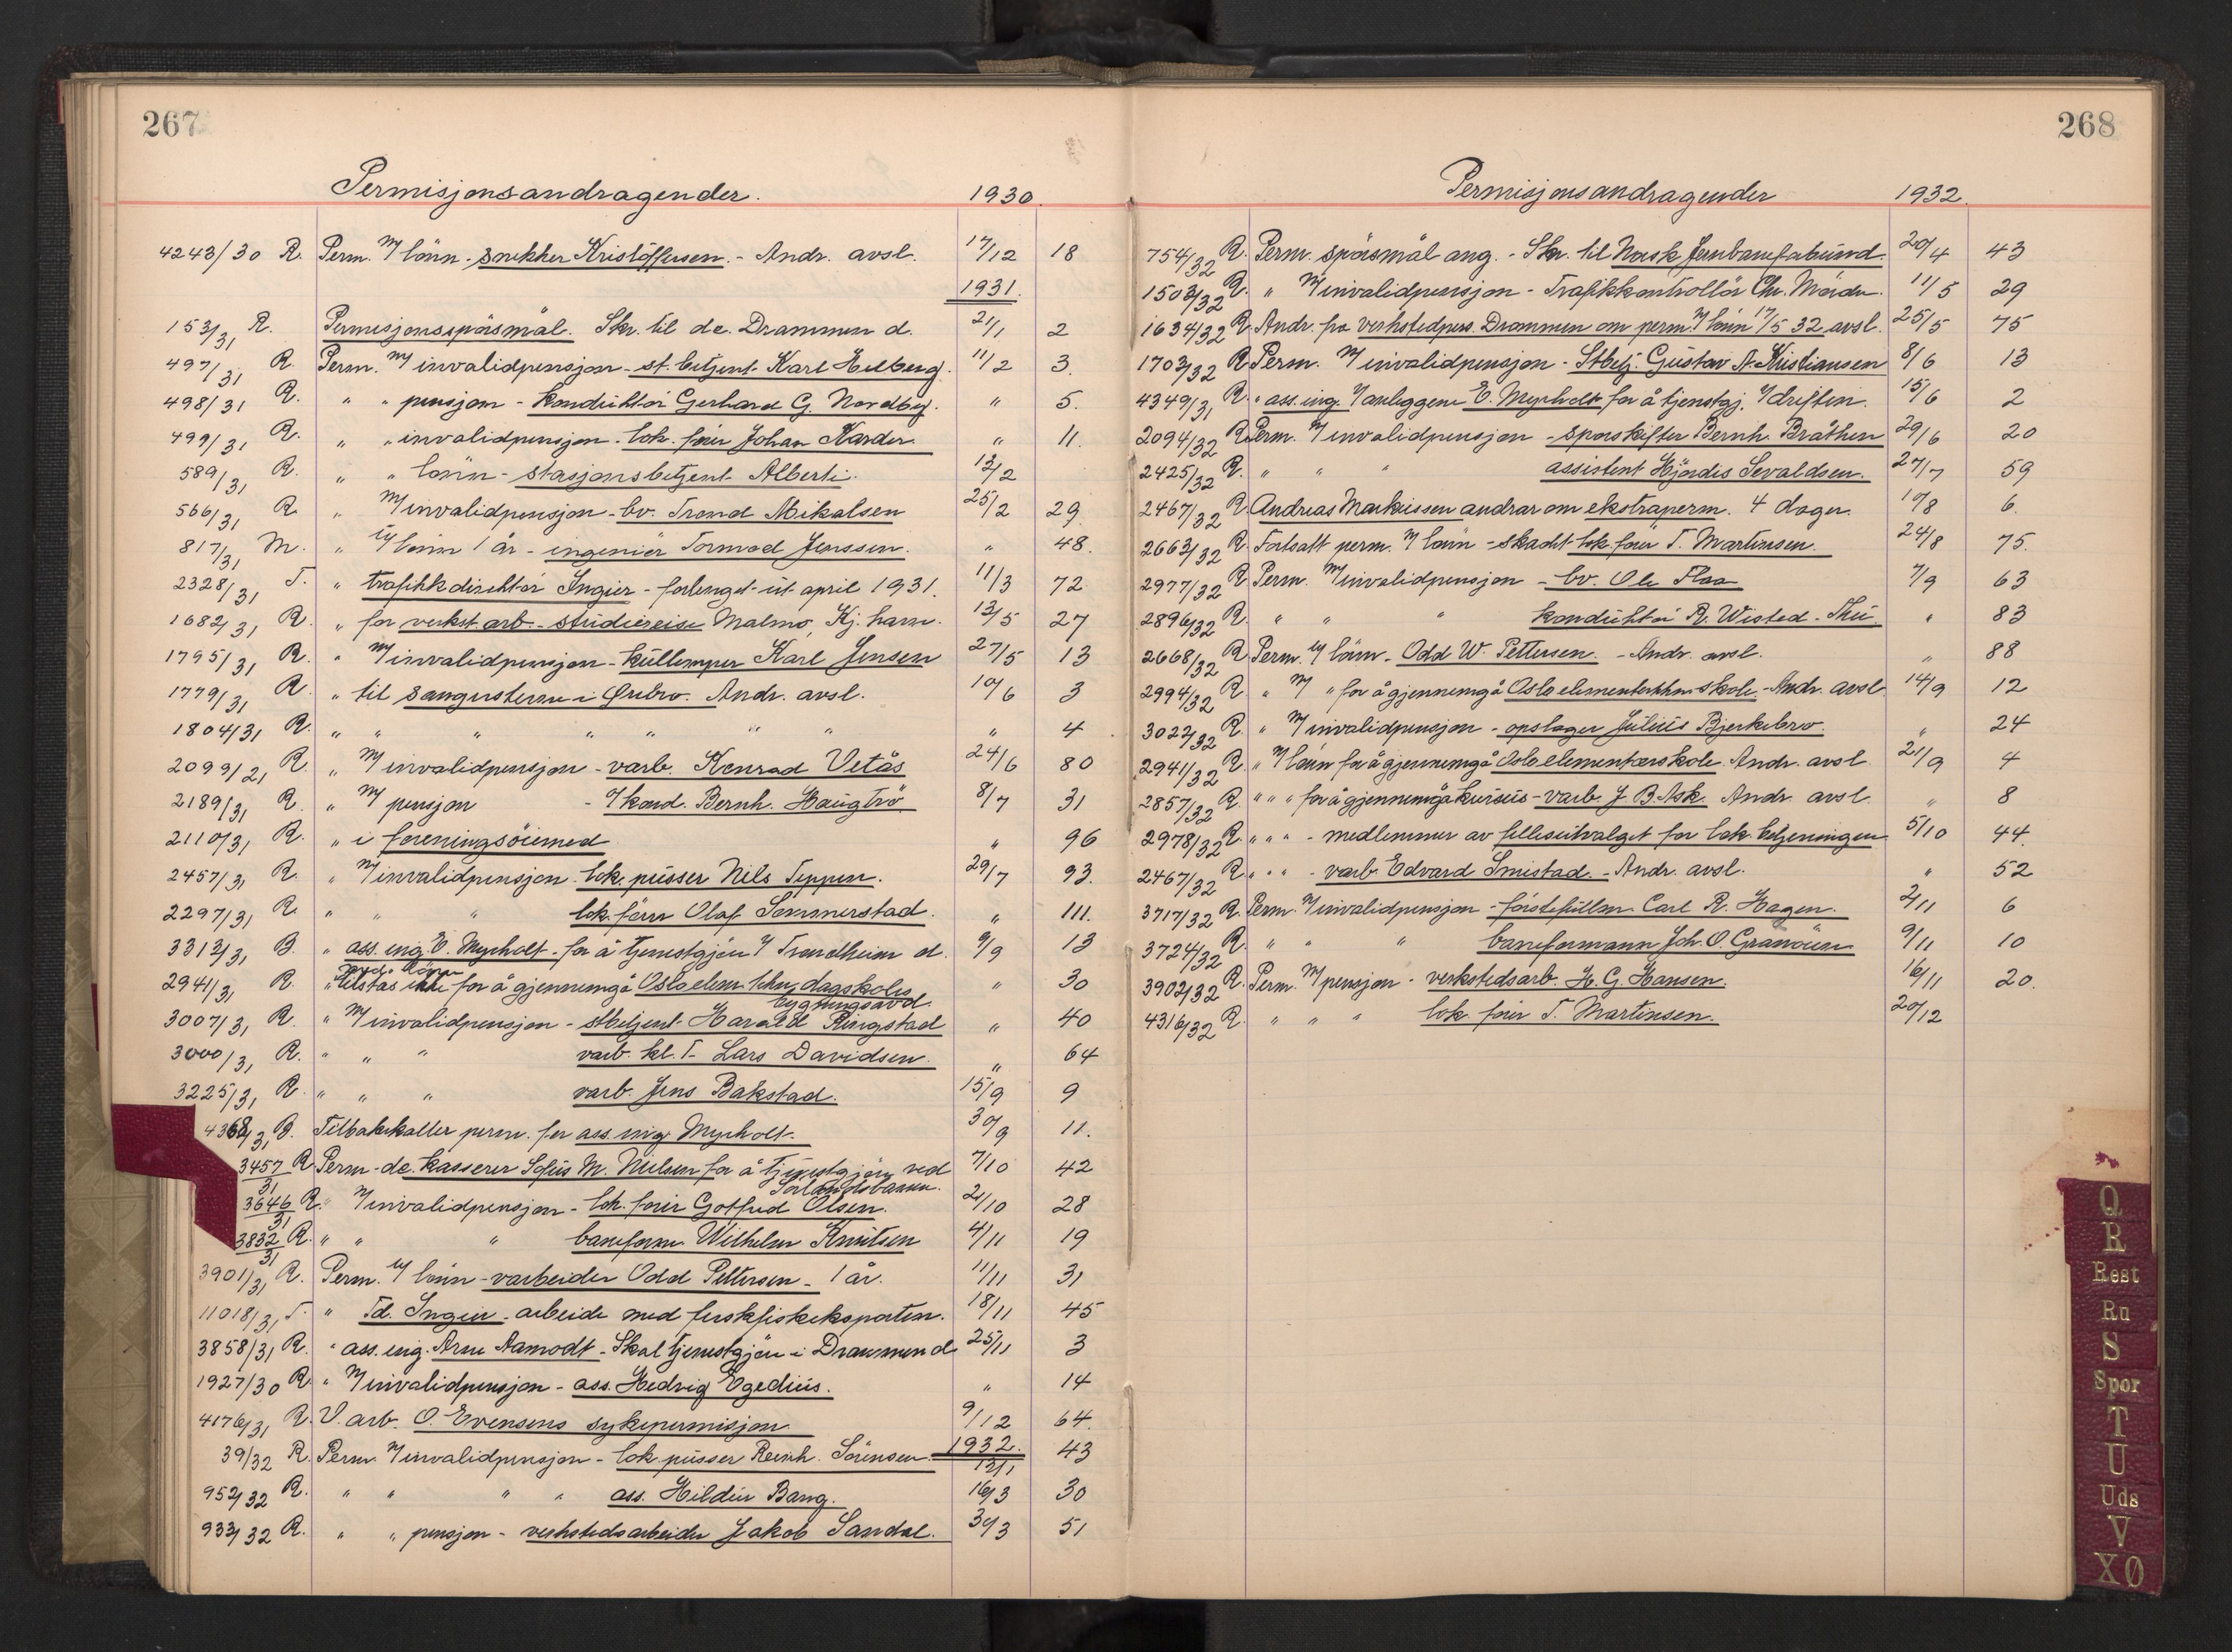 267
Permisjonsandragender. 1930.
4243/30 R. Perm. m/ lönn - snekker Kristoffersen. - Andr. avsl. 17/12 18
1931.
153/31 R. Permisjonsspörsmål. Skr. til dc. Drammen d. 21/1 2
497/31 R. Perm. m/ invalidpensjon - st. betjent Karl Helberg. 11/2 3.
498/31 R. " " pensjon - Konduktör Gerhard G. Nordby. " 5.
499/31 R. " " invalidpensjon - lok. förer Johan " 11.
589/31 R. " " lönn - stasjonsbetjent Alberti. 12/2
566/31 R. " m/ invalidpensjon - bv. Trond Mikalsen 25/2 29
817/31 M. " u/ lönn 1 år - ingeniör Tormod Jenssen. " 48.
2328/31 T. " trafikkdirektör Ingier - forlenget ut april 1931. 11/3 72
1682/31 R. " for verkst. arb. - studiereise Malmö, Kj. havn. 13/5 27
1795/31 R. " m/ invalidpensjon - kullemper Karl Jensen 27/5 13
1779/31 R. " til sangerstevne i Örebro. Andr. avsl. 10/6 3
1804/31 R. " " " " " " " " 4
2099/21 R. " m/ invalidpensjon - varb. Konrad Vetås 24/6 80
2189/31 R. " m/ pensjon - o/kond. Bernh. Haugtrö 8/7 31
2110/31 R. " i foreningsöiemed " 96
2457/31 R. " m/ invalidpensjon - lok. pusser Nils Teppen. 29/7 93.
2297/31 R. " " " lok. förer Olaf Sommerstad. " 111.
3313/31 B. " ass. ing. E. Myrholt - for å tjenestgjöre v/ Trondheim d. 9/9 13
2941/31 R. " med lönn tilstås ikke for å gjennemgå Oslo elem. tekn. dagskoles bygningsavd. " 30
3007/31 R. " m/ invalidpensjon - stbetjent Harald Ringstad " 40
3000/31 R. " " " varb. kl. I - Lars Davidsen. " 64
3225/31 R. " " " varb. Jens Bakstad. 15/9 9
4368/31 B. Tilbakekaller perm. for ass. ing. Myrholt. 30/9 11.
3457/31 R. Perm - dc. kasserer Sofus M. Nielsen for å tjenestgjöre ved Sörlandsbanen. 7/10 42
3646/31 R. " m/ invalidpensjon - lok. förer Gotfred Olsen. 21/10 28
3832/31 R. " " " baneform. Wilhelm Knutsen 4/11 19
3901/31 R. Perm. u/ lönn - varbeider Odd Pettersen - 1 år. 11/11 31
11018/31 T. " Td. Ingier - arbeide med ferskfiskeksporten. 18/11 45
3858/31 R. " ass. ing. Arne Aamodt - Skal tjenestgjöre i Drammen d 25/11 3
1927/30 R. " m/ invalidpensjon - ass. Hedvig Egedius. " 14
4176/31 R. V. arb. O. Evensens sykepermisjon 9/12 64
1932.
39/32 R. Perm. m/ invalidpensjon - lok. pusser Reinh. Sörensen 13/1 43
952/32 R. " " " " ass. Hildur Bang. 16/3 30
933/32 R. " " pensjon - verkstedsarbeider Jakob Sandal. 30/3 51
268
Permisjonsandragender 1932.
754/32 R. Perm. spörsmål ang. - Skr. til Norsk Jernbaneforbund. 20/4 43
1503/32 R. " m/ invalidpensjon - Trafikkontrollör Chr. 11/5 29
1634/32 R. Andr. fra verkstedpers. Drammen om perm. m/ lönn 17/5 32 avsl. 25/5 75
1703/32 R. Perm. m/ invalidpensjon - Stbetj. Gustav A. Kristiansen 8/6 13
4349/31 R. " ass. ing. v/ anleggene E. Myrholt for å tjenstgj. v/ driften. 15/6 2
2094/32 R. Perm. m/ invalidpensjon - sporskifter Bernh. Bråthen 29/6 20
2425/32 R. " " " assistent Hjördis Sevaldsen. 27/7 59
2467/32 R. Andreas Markussen andrar om ekstraperm. 4 dager. 10/8 6.
2663/32 R. Fortsatt perm. m/ lönn - skadet lok. förer T. Martinsen. 24/8 75.
2977/32 R. Perm. m/ invalidpensjon - bv. Ole Flaa 7/9 63
2896/32 R. " " " konduktör R. Wisted-Thu. " 83
2668/32 R. Perm. u/ lönn - Odd W. Pettersen. - Andr. avsl. " 88
2994/32 R. " m/ " for å gjennemgå Oslo elementærtekn. skole - Andr. avsl 14/9 12
3022/32 R. " m/ invalidpensjon - opslager Julius Bjerkebro. " 24
2941/32 R. " m/ lönn for å gjennemgå Oslo elementærskole. Andr. avsl 21/9 4
2857/32 R. " " " for å gjennemgå kursus - varb. J. B. Ask. Andr. avsl. " 8
2978/32 R. " " " - medlemmer av fellesutvalget for lok. betjeningen 5/10 44.
2467/32 R. " " " - varb. Edvard Smistad. - Andr. avsl. " 52
3717/32 R. Perm. m/ invalidpensjon - förstefullm. Carl R. Hagen. 2/11 6
3724/32 R. " " " baneformann Joh. O. Granöien 9/11 10
3902/32 R. Perm. m/ pensjon - verkstedsarb. H. G. Hansen. 16/11 20.
4316/32 R. " " " lok. förer T. Martinsen. 20/12
Q
R
Rest
Ru
S
Spor
T
U
Uds
V
XØ